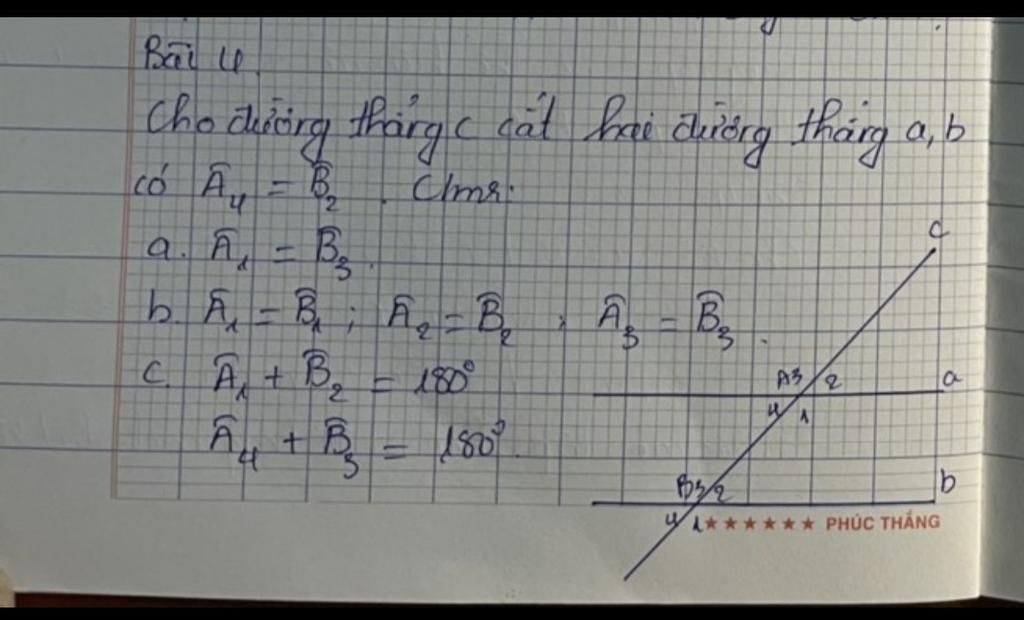 Bài 4
Cho đường thẳng c cắt hai đường thẳng a, b
có Â₄ = B̂₂. Cmr:
a. Â₁ = B̂₃.
b. Â₁ = B̂₁ ; Â₂ = B̂₂ ; Â₃ = B̂₃.
c. Â₁ + B̂₂ = 180°
Â₄ + B̂₃ = 180°.
c
A3 2 a
4 1
B3 2 b
4 1 ★★★★★★ PHÚC THẮNG